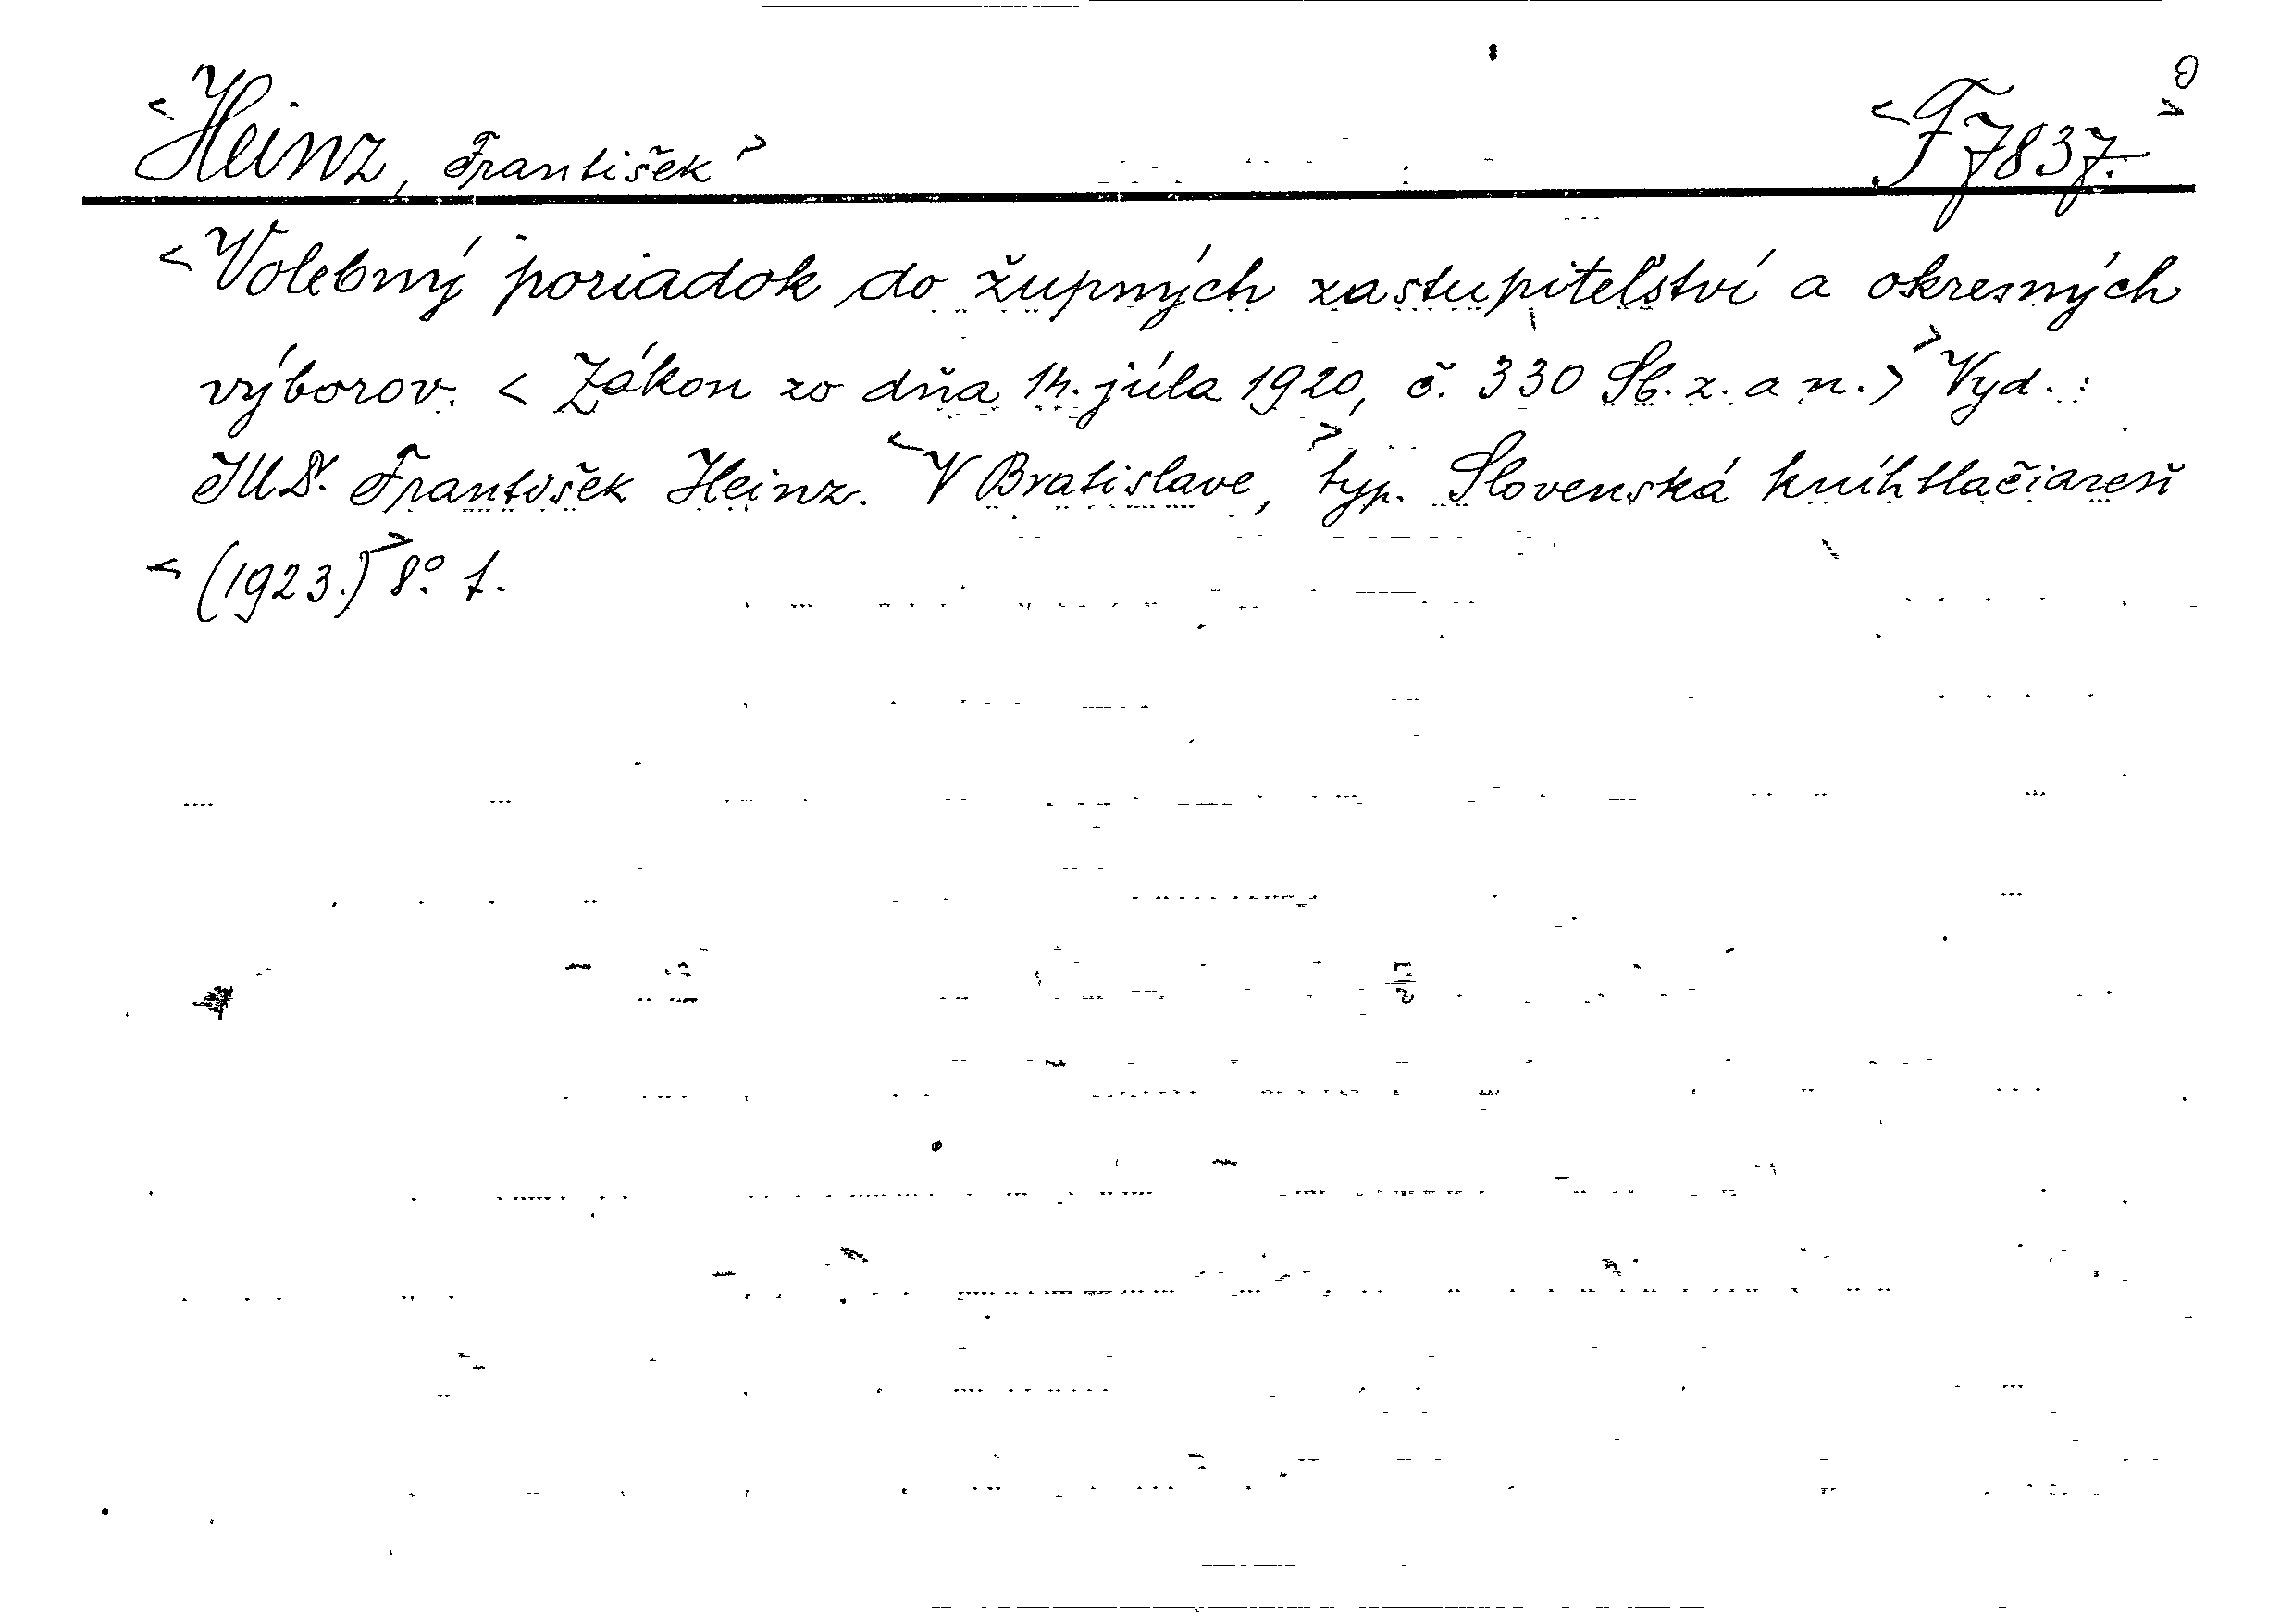 <Heinz, František> <F 7837.>
<Volebný poriadok do župných zastupiteľství a okresných
výborov. < Zákon zo dňa 14. júla 1920, č. 330 Sb. z. a n.> Vyd.:
JUDr. František Heinz. <V Bratislave,> typ. Slovenská kníhtlačiareň
<(1923.)> 8º. 1.